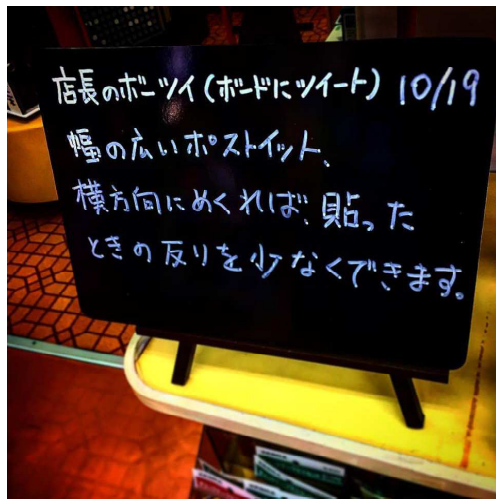 店長のボーツイ(ボードにツイート) 10/19
幅の広いポストイット、
横方向にめくれば、貼った
ときの反りを少なくできます。